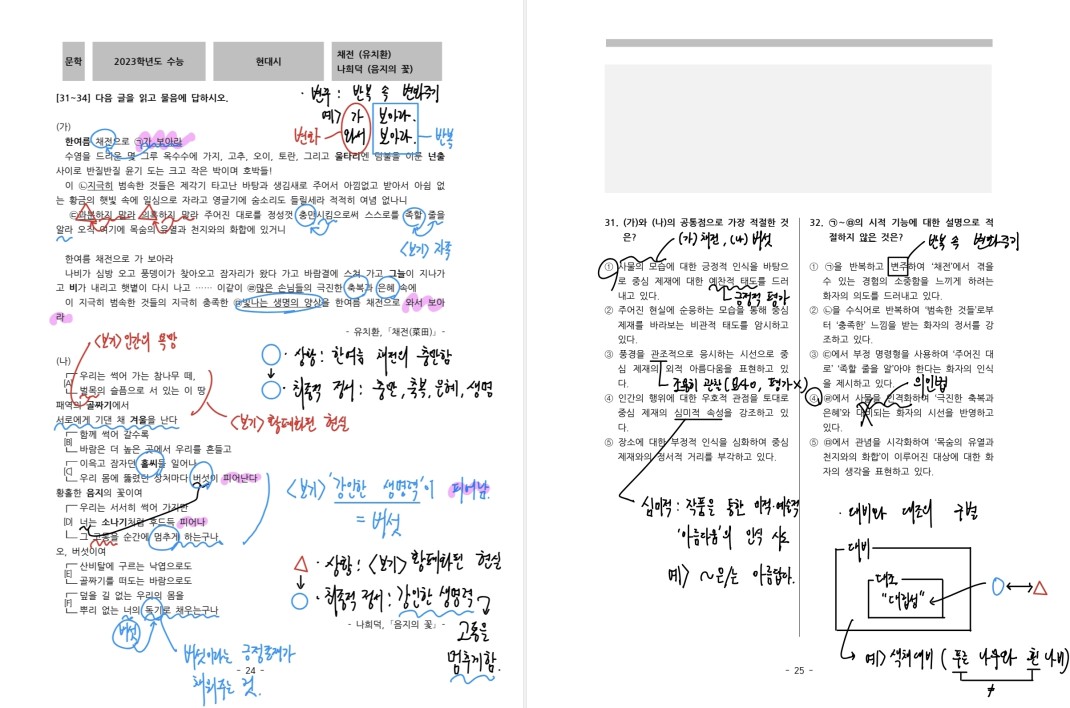 문학
2023학년도 수능
현대시
채전 (유치환)
나희덕 (음지의 꽃)
· 변주 : 반복 속 변화주기
[31~34] 다음 글을 읽고 물음에 답하시오.
예> 가 보아라.
변화 와서 보아라. 반복
(가)
한여름 채전으로 ㉠가 보아라
수염을 드리운 몇 그루 옥수수에 가지, 고추, 오이, 토란, 그리고 울타리엔 덤불을 이룬 넌출
사이로 반질반질 윤기 도는 크고 작은 박이며 호박들!
이 ㉡지극히 범속한 것들은 제각기 타고난 바탕과 생김새로 주어서 아낌없고 받아서 아쉼 없
는 황금의 햇빛 속에 일심으로 자라고 영글기에 숨소리도 들릴세라 적적히 여념 없나니
㉢과분하지 말라 의혹하지 말라 주어진 대로를 정성껏 충만시킴으로써 스스로를 족할 줄을
알라 오직 여기에 목숨의 유열과 천지와의 화합에 있거니
<보기> 자족
한여름 채전으로 가 보아라
나비가 심방 오고 풍뎅이가 찾아오고 잠자리가 왔다 가고 바람결에 스쳐 가고 그늘이 지나가
고 비가 내리고 햇볕이 다시 나고 …… 이같이 ㉣많은 손님들의 극진한 축복과 은혜 속에
이 지극히 범속한 것들의 지극히 충족한 ㉤빛나는 생명의 양상을 한여름 채전으로 와서 보아
라
- 유치환, 「채전(菜田)」 -
<보기>인간의 욕망
· 상황 : 한여름 채전의 충만함
· 최종적 정서 : 충만, 축복, 은혜, 생명
(나)
[A] 우리는 썩어 가는 참나무 떼,
벌목의 슬픔으로 서 있는 이 땅
패역의 골짜기에서
서로에게 기댄 채 겨울을 난다
<보기>황폐화된 현실
[B] 함께 썩어 갈수록
바람은 더 높은 곳에서 우리를 흔들고
[C] 이윽고 잠자던 홀씨들 일어나
우리 몸에 뚫렸던 상처마다 버섯이 피어난다
황홀한 음지의 꽃이여
<보기> '강인한 생명력'이 피어남.
= 버섯
[D] 우리는 서서히 썩어 가지만
너는 소나기처럼 후드득 피어나
그 고통을 순간에 멈추게 하는구나
오, 버섯이여
· 상황 : <보기> 황폐화된 현실
· 최종적 정서 : 강인한 생명력
고통을
멈추게함.
[E] 산비탈에 구르는 낙엽으로도
골짜기를 떠도는 바람으로도
[F] 덮을 길 없는 우리의 몸을
뿌리 없는 너의 독기로 채우는구나
- 나희덕, 「음지의 꽃」 -
버섯
버섯이라는 긍정존재가
채워주는 것.
- 24 -
31. (가)와 (나)의 공통점으로 가장 적절한 것
은?
(가) 채전, (나) 버섯
① 사물의 모습에 대한 긍정적 인식을 바탕으
로 중심 제재에 대한 예찬적 태도를 드러
내고 있다.
긍정적 평가
② 주어진 현실에 순응하는 모습을 통해 중심
제재를 바라보는 비관적 태도를 암시하고
있다.
③ 풍경을 관조적으로 응시하는 시선으로 중
심 제재의 외적 아름다움을 표현하고 있
다.
조용히 관찰(묘사O, 평가X)
④ 인간의 행위에 대한 우호적 관점을 토대로
중심 제재의 심미적 속성을 강조하고 있
다.
⑤ 장소에 대한 부정적 인식을 심화하여 중심
제재와의 정서적 거리를 부각하고 있다.
심미적 : 작품을 통한 미적·예술적
'아름다움'의 인식 사고
예> ~은/는 아름답다.
32. ㉠~㉤의 시적 기능에 대한 설명으로 적
절하지 않은 것은?
반복 속 변화주기
① ㉠을 반복하고 변주하여 '채전'에서 겪을
수 있는 경험의 소중함을 느끼게 하려는
화자의 의도를 드러내고 있다.
② ㉡을 수식어로 반복하여 '범속한 것들'로부
터 '충족한' 느낌을 받는 화자의 정서를 강
조하고 있다.
③ ㉢에서 부정 명령형을 사용하여 '주어진 대
로' '족할 줄을 알'아야 한다는 화자의 인식
을 제시하고 있다.
의인법
④ ㉣에서 사물을 인격화하여 '극진한 축복과
은혜'와 대비되는 화자의 시선을 반영하고
있다.
⑤ ㉤에서 관념을 시각화하여 '목숨의 유열과
천지와의 화합'이 이루어진 대상에 대한 화
자의 생각을 표현하고 있다.
· 대비와 대조의 구별
대비
대조
"대립성"
예> 색채대비 ( 푸른 나무와 흰 나비)
≠
- 25 -